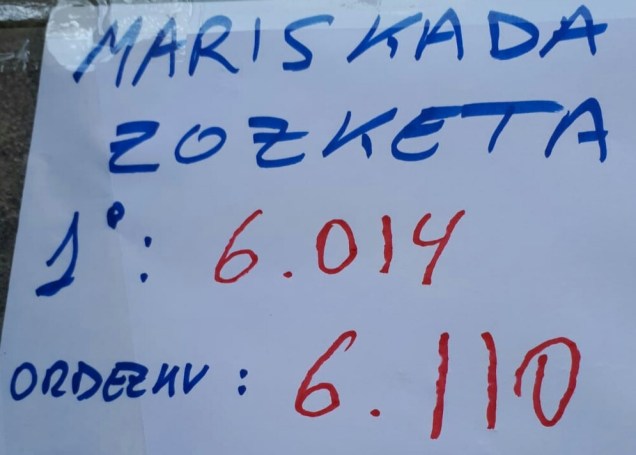 MARISKADA
ZOZKETA
1º: 6.014
ORDEZKU: 6.110